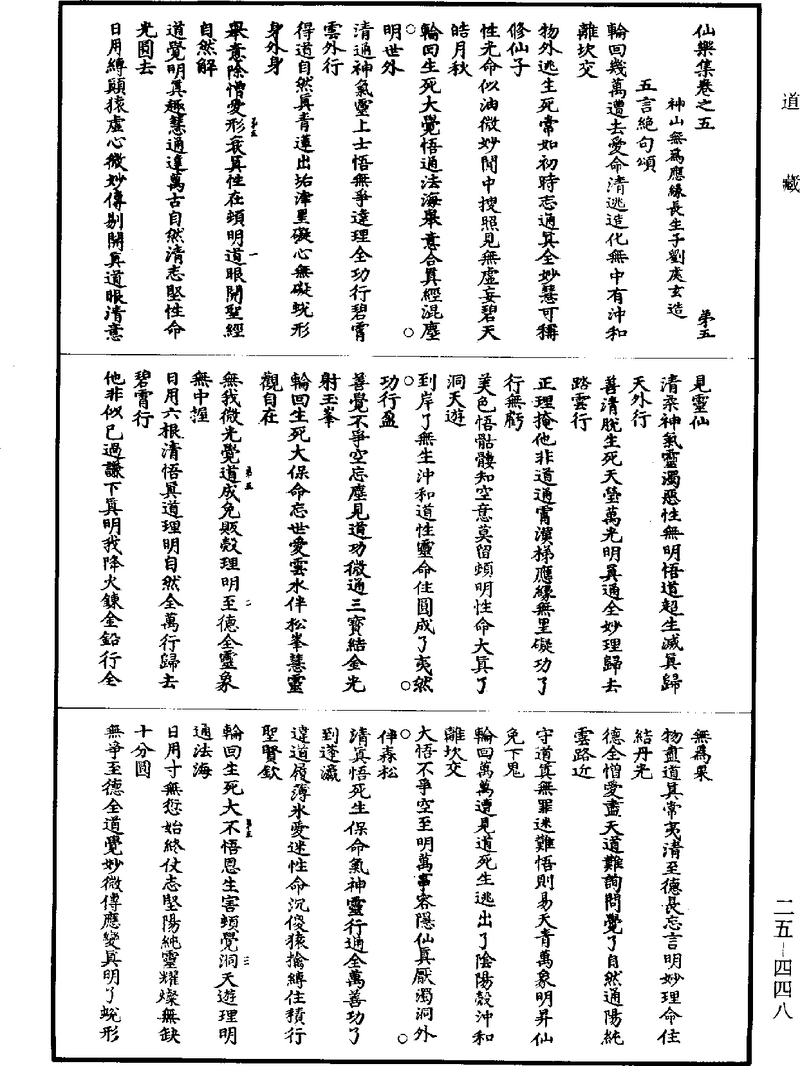 道藏
仙樂集卷之五　第五
神山無為應緣長生子劉處玄造
五言絕句頌
輪回幾萬遭去愛命清逃造化無中有沖和
離坎交
物外逃生死常如初時志通真全妙慧可稱
修仙子
性光命似油微妙閑中搜照見無虛妄碧天
皓月秋
輪回生死大覺悟通法海舉意合真經混塵
明世外
清通神氣靈上士悟無爭達理全功行碧霄
雲外行
得道自然真青蓮出垢津里礙心無礙蛻形
身外身
舉意除憎愛形衰真性在頓明道眼開聖經
自然解
道覺明真趣慧通達萬古自然清志堅性命
光圓去
日用縛顛猿虛心微妙傳剔開真道眼清意
見靈仙
清柔神氣靈濁惡性無明悟道超生滅真歸
天外行
善清脫生死天瑩萬光明真通全妙理歸去
踏雲行
正理掩他非道通霄漢梯應緣無里礙功了
行無虧
美色悟骷髏知空意莫留頓明性命大真了
洞天遊
到岸了無生沖和道性靈命住圓成了夷然
功行盈
善覺不爭空忘塵見道功微通三寶結金光
射玉峯
輪回生死大保命忘世愛雲水伴松峯慧靈
觀自在
無我微光覺道成免販殼理明至德全靈象
無中握
日用六根清悟真道理明自然全萬行歸去
碧霄行
他非似已過謙下真明我降火鍊金鉛行全
無為果
物盡道真常夷清至德長忘言明妙理命住
結丹光
德全憎愛盡天道難詢問覺了自然通陽純
雲路近
守道真無罪迷難悟則易天青萬象明昇仙
免下鬼
輪回萬萬遭見道死生逃出了陰陽殼沖和
離坎交
大悟不爭空至明萬事容隱仙真厭濁洞外
伴森松
清真悟死生保命氣神靈行通全萬善功了
到蓬瀛
違道履薄氷愛迷性命沉傻猿擒縛住積行
聖賢欽
輪回生死大不悟恩生害頓覺洞天遊理明
通法海
日用寸無愆始終仗志堅陽純靈耀燦無缺
十分圓
無爭至德全道覺妙微傳應變真明了蛻形
二五－四四八